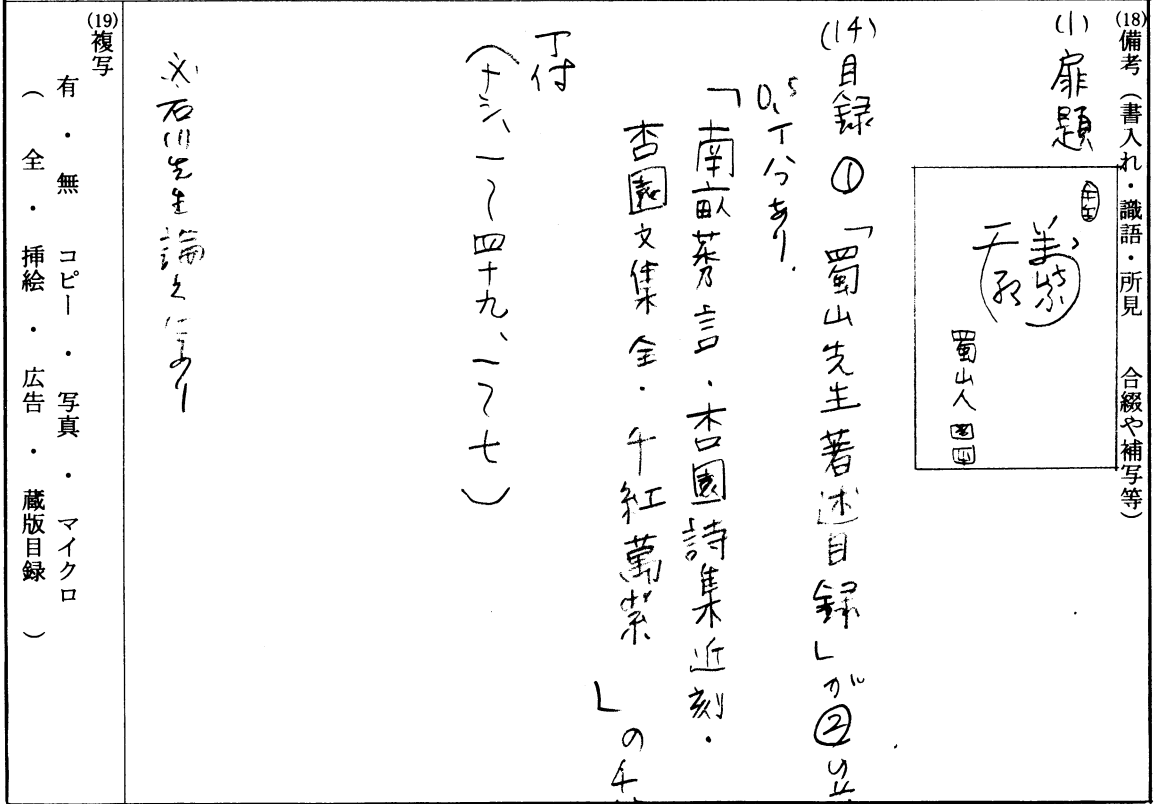 (18)備考（書入れ・識語・所見　合綴や補写等）
(1) 扉題
萬紫
千紅
蜀山人
(14) 目録 ①「蜀山先生著述目録」が②
0.5丁分あり．
「南畝莠言・杏園詩集近刻・
杏園文集全・千紅萬紫　」の
丁付
（一〜四十九、一〜七）
※石川先生論文にあり
(19)複写
有・無　コピー・写真・マイクロ
（全・挿絵・広告・蔵版目録　）